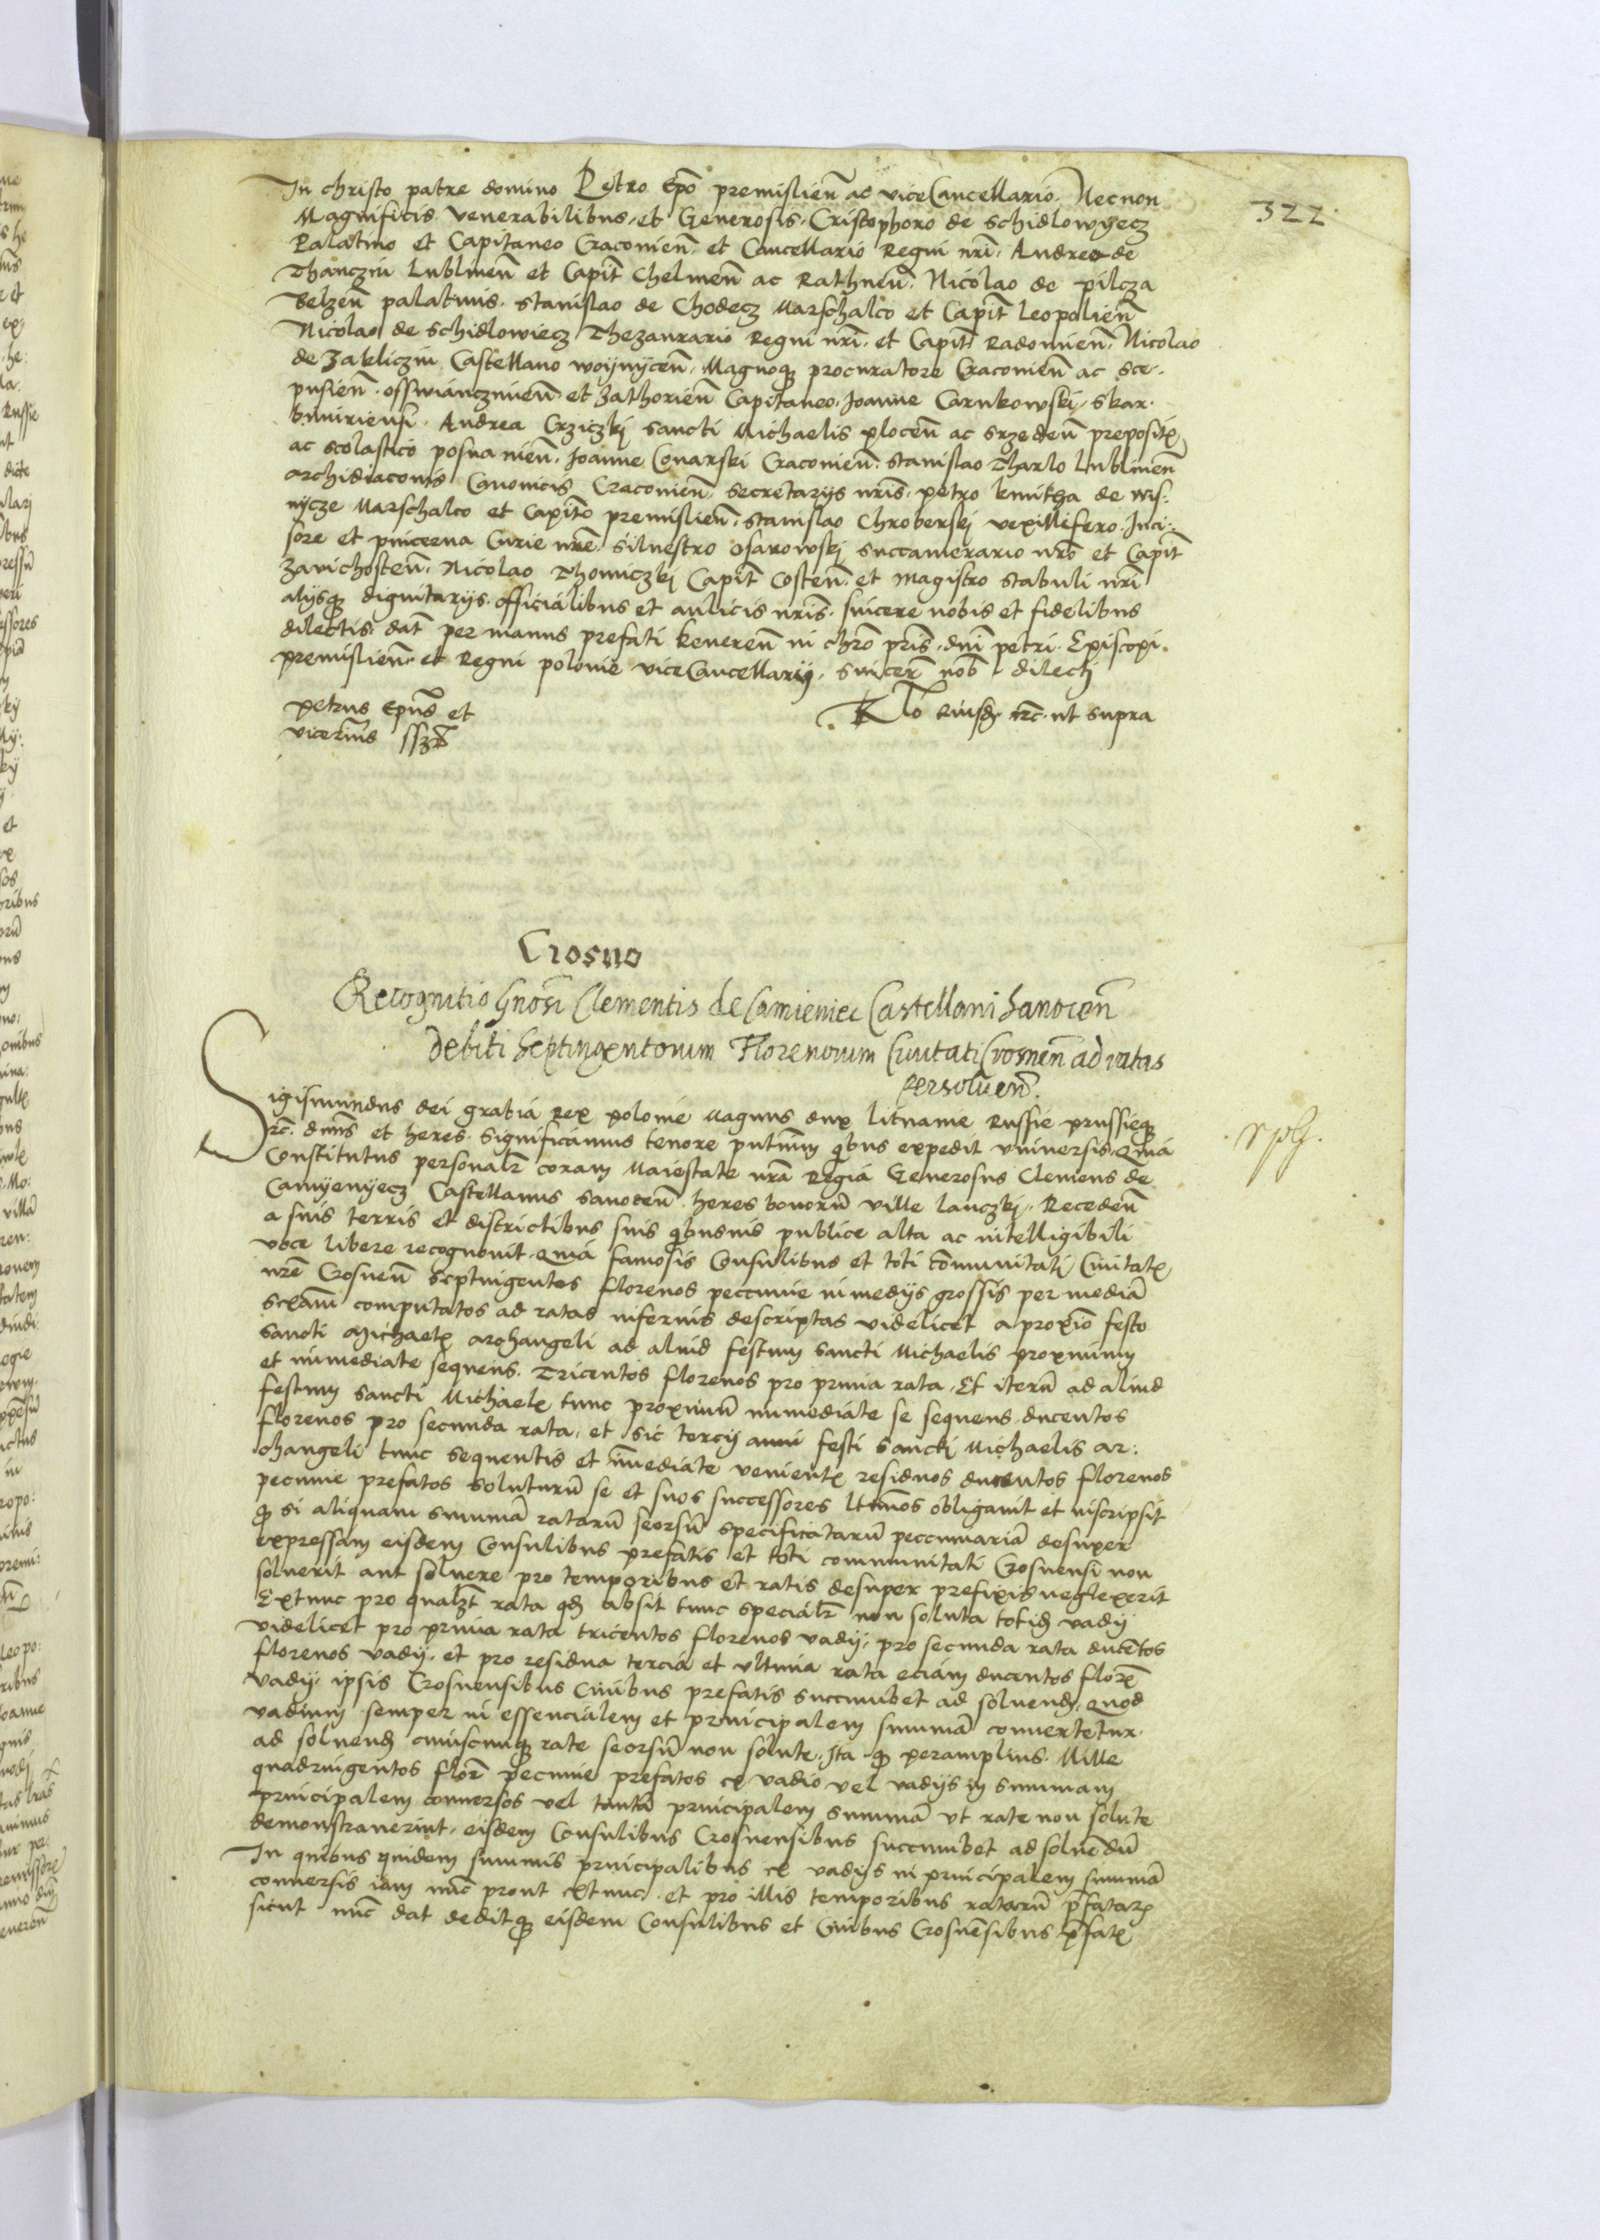 322
In christo patre domino Petro Epō premislieñ ac viceCancellario. Necnon
Magnificis Venerabilibus et Generosis. Cristophoro de Schidlowyecz
Palatino et Capitaneo Cracovieñ et Cancellario Regni nrī. Andrea de
Thanczin Lublineñ et Capit̄ Chelmeñ ac Rathneñ. Nicolao de pilcza
Belzeñ palatinis. Stanislao de Chodecz Marschalco et Capit̄ Leopolieñ
Nicolao de Schidlowiecz Thezaurario Regni nrī. et Capit̄ Radomieñ. Nicolao
de Zakliczin Castellano woynyceñ. Magnoq procuratore Cracovieñ ac Sce.
pusieñ. osswianczimeñ et Zathorieñ Capitaneo. Joanne Carnkowski Skar.
bimiriensi. Andrea Crziczki sancti Michaelis ploceñ ac Srzedeñ preposit
ac scolastico posnanieñ. Joanne Conarski Cracovieñ. Stanislao Tharlo Lublineñ
archidiaconis Canonicis Cracovieñ. Secretarys nrīs. petro kmitha de wis:
nycze Marschalco et Capito premislieñ. Stanislao Chroberski vexillifero. Inci:
sore et pincerna Curie nrē. Silvestro Osarowski succamerario nrō et Capit̄
Zavichosteñ. Nicolao Thomiczki Capit̄ Costeñ. et magistro stabuli nrī
alysq dignitarys. officialibus et aulicis nrīs. sincere nobis et fidelibus
dilectis. dat̄ per manus prefati Revereñ in chrō pris. dnī petri. Episcopi.
premislieñ. et Regni polonie viceCancellarij. sincer̄ nob̄ dilecti
petrus Epūs et
vicecnriis sszt
Rlo eiusd rc. ut supra
Crosno
Recognitio Gnosi Clementis de Camieniec Castellani Sanoceñ
debiti Septingentorum Florenorum Civitati Crosneñ ad ratas
persolveñ.
Sigismundus dei gratia Rex polonie Magnus dux litvanie Russie prussieq
rc. dnūs et heres. Significamus tenore pntiūm qibus expedit universis. Quia
Constitutus personalr̄ coram Maiestate nrā Regia Generosus Clemens de
Camyenyecz Castellanus Sanoceñ heres bonorū ville lanczki. Recedeñ
a suis terris et districtibus suis qibusvis publice alta ac intelligibili
voce libere recognovit. Quia famosis Consulibus et toti cōmunitati Civitat
nrē Crosneñ septingentos florenos peccunie in medys grossis per mediā
sexam̄ computatos ad ratas inferius descriptas videlicet a proximo festo
sancti Michael archangeli ad aliud festum sancti Michaelis proximum
et immediate sequens. Tricentos florenos pro prima rata. Et iterū ad aliud
festum sancti Michael tunc proximū immediate se sequens ducentos
florenos pro secunda rata. et sic tercy anni festi sancti Michaelis ar:
changeli tunc sequentis et īmediate venient residuos ducentos florenos
pecunie prefatos soluturū se et suos successores ltimos obligavit et inscripsit
q si aliquam summā ratarū seorsū specificatarū peccuniariā desuper
expressam eisdem Consulibus prefatis et toti communitati Crosnensi non
solverit aut solvere pro temporibus et ratis desuper prefixis neglexerit
Extunc pro qualzt rata qd absit tunc specialr̄ non soluta totid vady
videlicet pro prima rata tricentos florenos vadij. pro secunda rata ducētos
florenos vadij. et pro residua tercia et ultima rata eciam ducentos florē
vadij. ipsis Crosnensibus Civibus prefatis succumbet ad solvend. Quod
vadium semper in essencialem et principalem summā convertetur.
ad solvend cuiuscunq rate seorsū non solute. Ita q peramplius. Mille
quadringentos florē pecunie prefatos ex vadio vel vadijs in summam
principalem conversos vel tantā principalem summā ut rate non solute
demonstraverint. eisdem Consulibus Crosnensibus succumbet ad solvēdū
In quibus quidem summis principalibus ex vadijs in principalem summā
conversis iam nūc prout extunc. et pro illis temporibus ratarū pfatar
sicut nūc dat deditq eisdem Consulibus et Civibus Crosnēsibus pfat